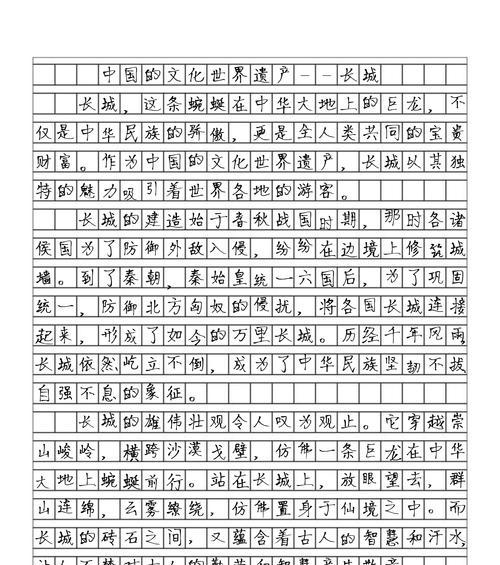 中国的文化世界遗产--长城
长城，这条蜿蜒在中华大地上的巨龙，不
仅是中华民族的骄傲，更是全人类共同的宝贵
财富。作为中国的文化世界遗产，长城以其独
特的魅力吸引着世界各地的游客。
长城的建造始于春秋战国时期，那时各诸
侯国为了防御外敌入侵，纷纷在边境上修筑城
墙。到了秦朝，秦始皇统一六国后，为了巩固
统一，防御北方匈奴的侵扰，将各国长城连接
起来，形成了如今的万里长城。历经千年风雨，
长城依然屹立不倒，成为了中华民族坚韧不拔
自强不息的象征。
长城的雄伟壮观令人叹为观止。它穿越崇
山峻岭，横跨沙漠戈壁，仿佛一条巨龙在中华
大地上蜿蜒前行。站在长城上，放眼望去，群
山连绵，云雾缭绕，仿佛置身于仙境之中。而
长城的砖石之间，又蕴含着古人的智慧和汗水，